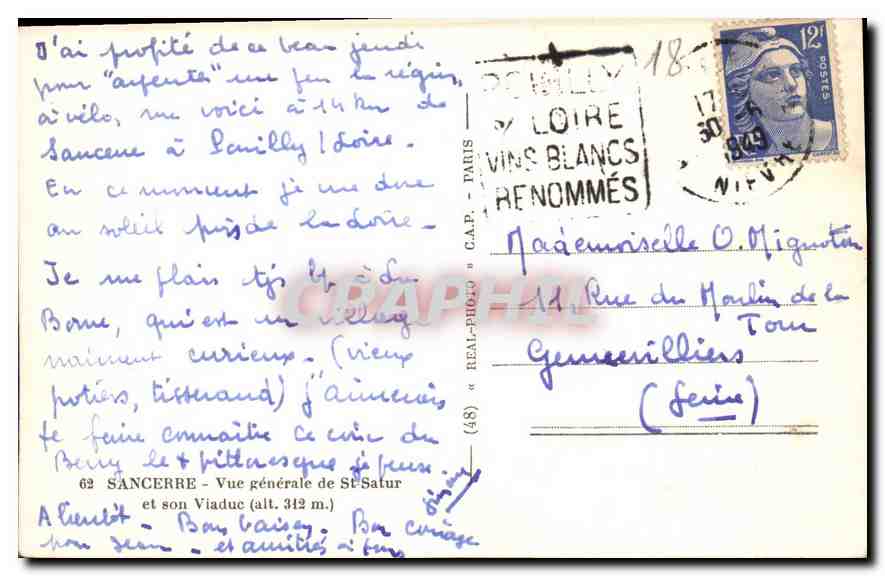 J'ai profité de ce beau jeudi
pour "arpenter" un peu la région,
à vélo, me voici à 14 km de
Sancerre à Pouilly/Loire.
En ce moment je me dore
au soleil près de la Loire -
Je me plais tjs bp à La
Borne, qui est un village
vraiment curieux - (vieux
potiers, tisserand) J'aimerais
te faire connaître ce coin du
Berry le + pittoresque je pense.
62 SANCERRE - Vue générale de St-Satur
et son Viaduc (alt. 312 m.)
A bientôt - Bons baisers - Bon courage
pour Jean - et amitiés à tous
(48) « REAL-PHOTO » C.A.P. - PARIS
POUILLY
s/ LOIRE
VINS BLANCS
RENOMMÉS
18
17
30 - 6
1949
NIEVRE
12F
POSTES
Mademoiselle O.
11, Rue du Moulin de la
Tour
Gennevilliers
(Seine)
CRAPHIL